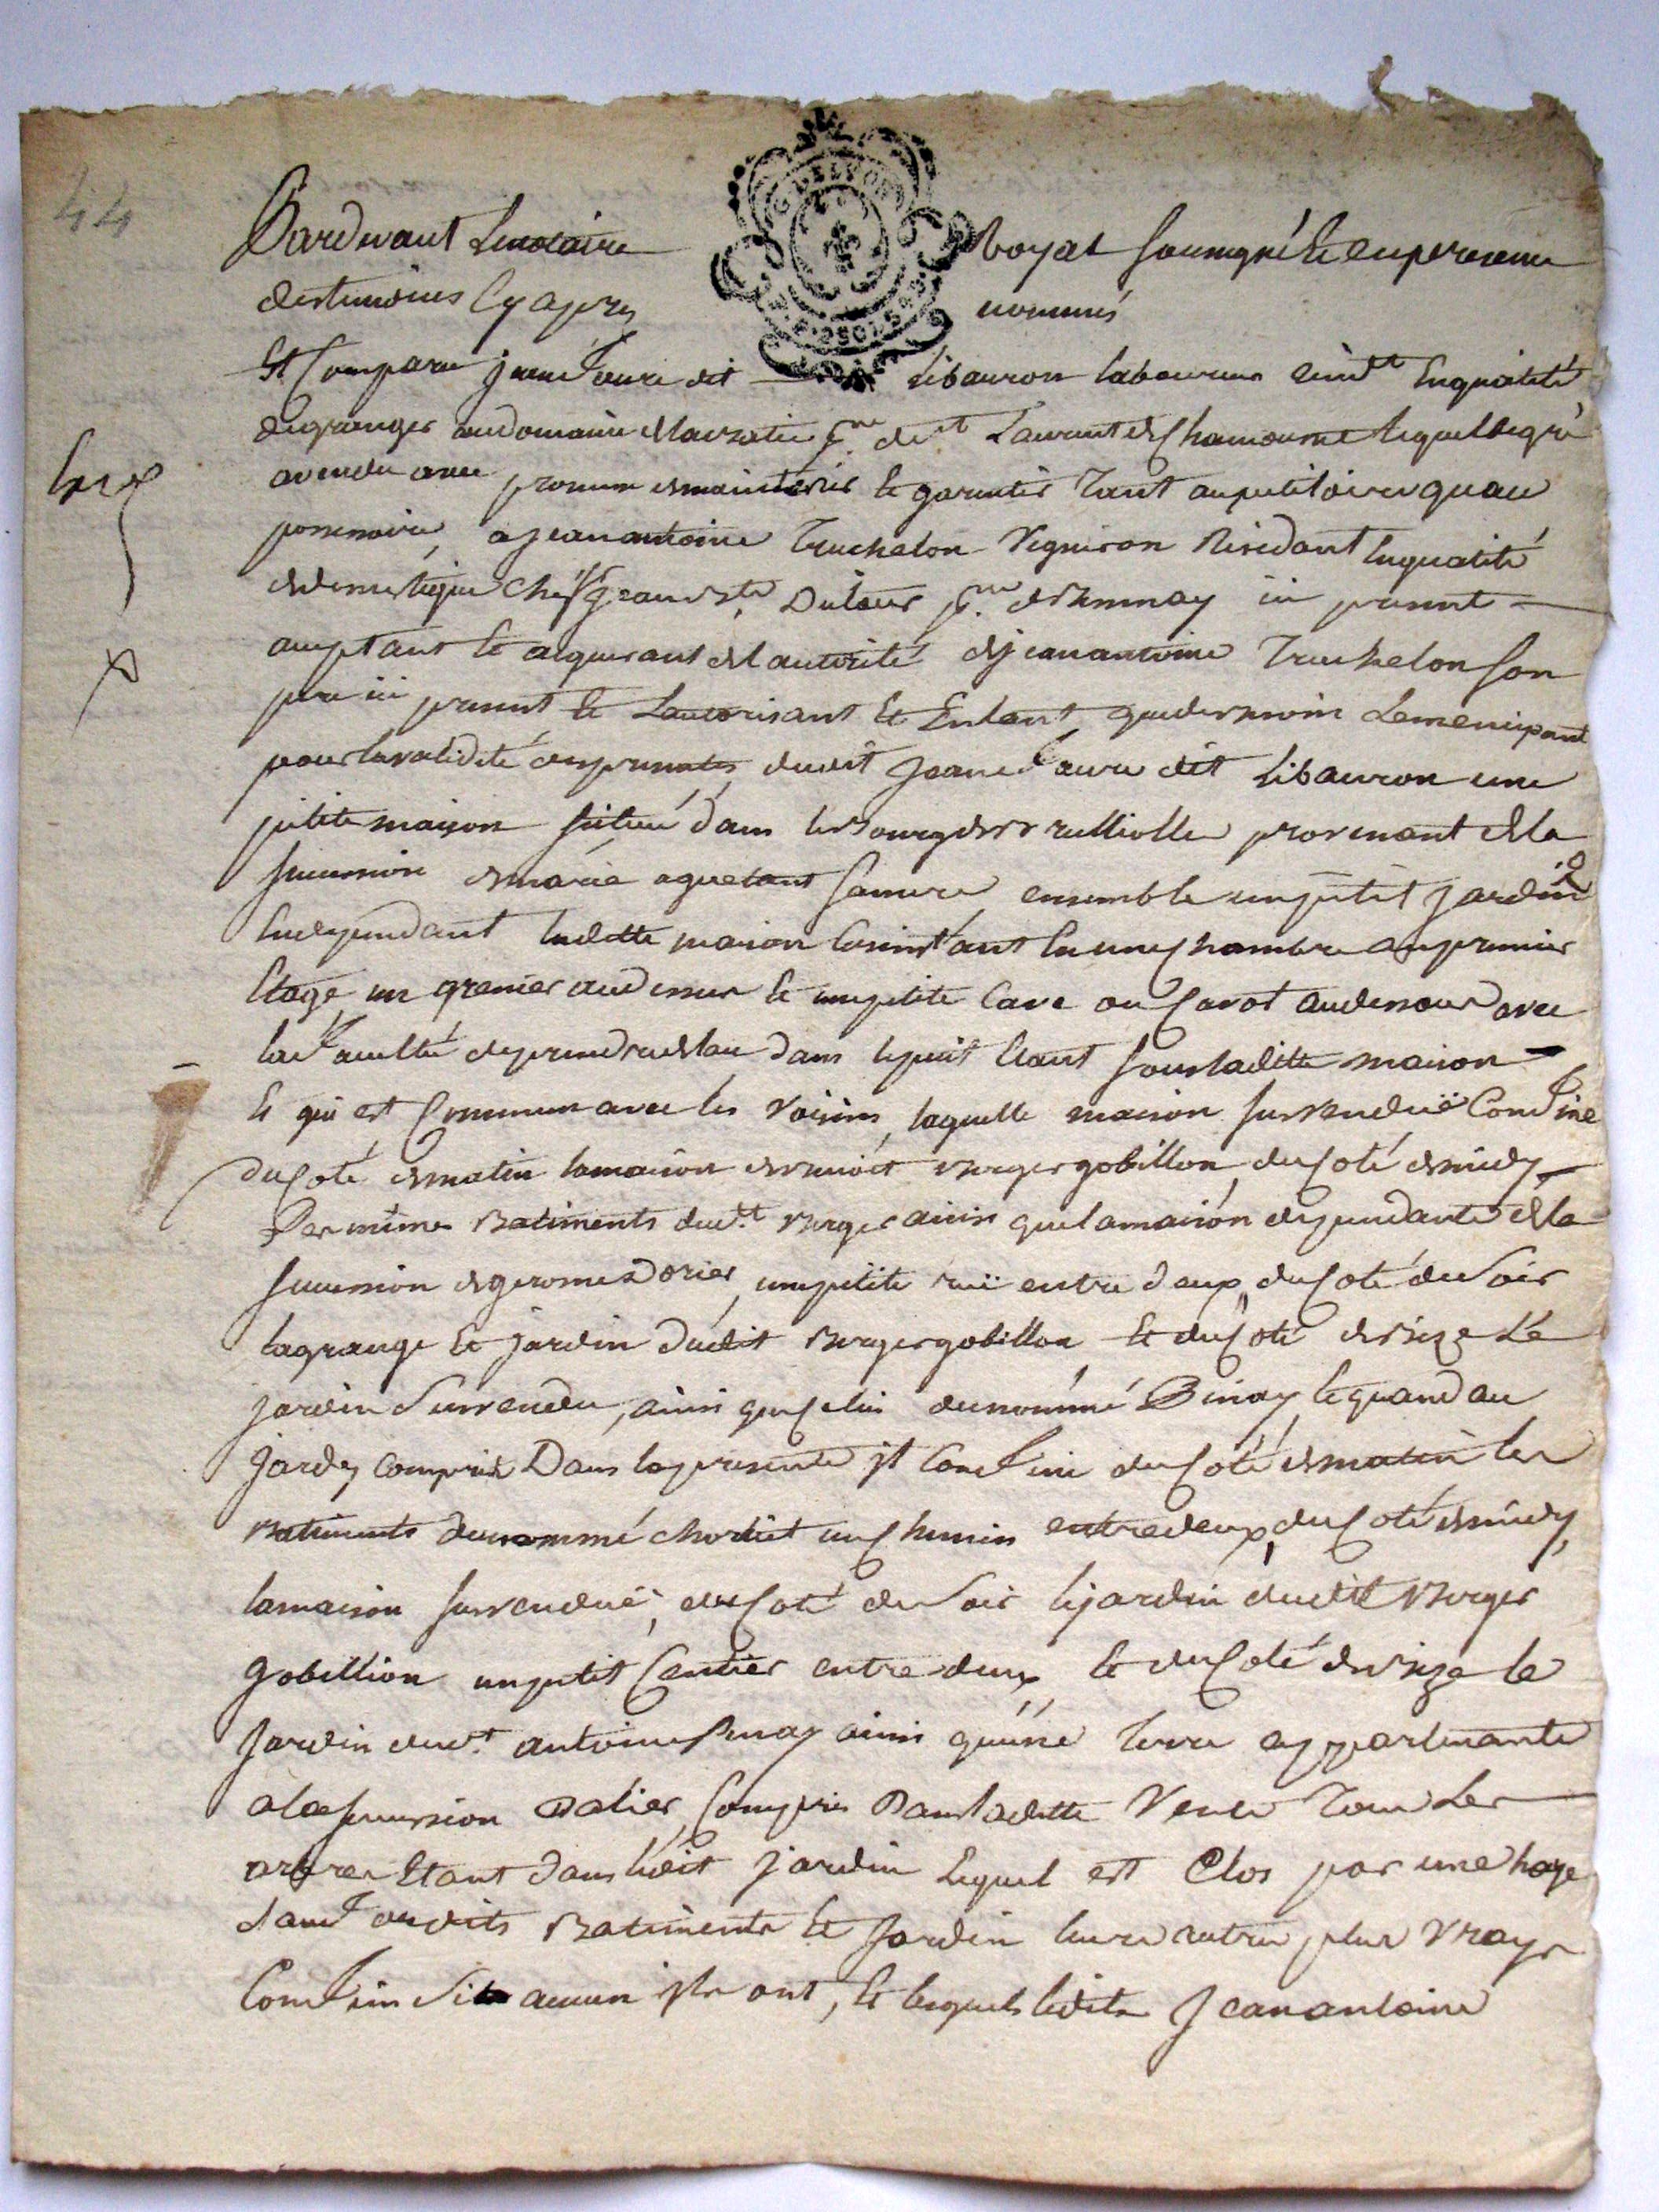 44
Pardevant Lenotaire Royal Soussigné & en presence
destemoins Cy apres nommés
Est Comparu jean faure dit Libauron laboureur Enqualité
degranger audomaine de Laurent de Chamousset lequel degré
avendu avec promesse demaintenir & garentir tant aupetitoire quau
possessoire, a jean antoine Truchelon Vigneron Residant Enqualité
dedomestique chez jean Dutour ici present
acceptant & acquerant del autorité de jean antoine Truchelon son
pere ici present & Lautorisant Et Entant quedebesoin Lemencipant
pour lavalidité despresentes, dudit Jean faure dit Libauron une
petite maison située dans lebourg de rulliolle provenant dela
succession de marie aguetant samere ensemble unpetit jardin
Endependant ladite maison Consistant En une chambre aupremier
Etage un grenier audessus & unepetite Cave ou Cavot audessous avec
la faculté deprendre deleau dans lepuit Etant sous laditte maison
& qui est Commun avec les Voisins, laquelle maison susvenduë Confine
du Coté dematin lamaison debenoit berger gobillon, du Coté demidy
Les mêmes batiments dud.t berger ainsi que lamaison dependante dela
succession degerome dorier, unepetite ruë entre deux, du Coté du Soir
lagrange & jardin dudit berger gobillon & du Coté de bize Le
jardin Susvendu, ainsi que celui dunommé Binay, & quand au
jardin compris Dans lapresente il Confine du Coté dematin les
batiments dunommé un chemin entredeux, du Coté demidy
lamaison susvenduë, du Coté du Soir lejardin dudit berger
gobillion unpetit Sentier entre deux & du Coté de bize le
jardin dud.t antoine Binay ainsi quúne terre appartenante
alasuccession Compris Dans laditte Vente Tous Les
arbres Etant dans ledit jardin lequel est Clos par une haye
batiments & jardin leurs autres plus Vrays
Confins Si aucun ils ont, & lesquels ledit Jean antoine